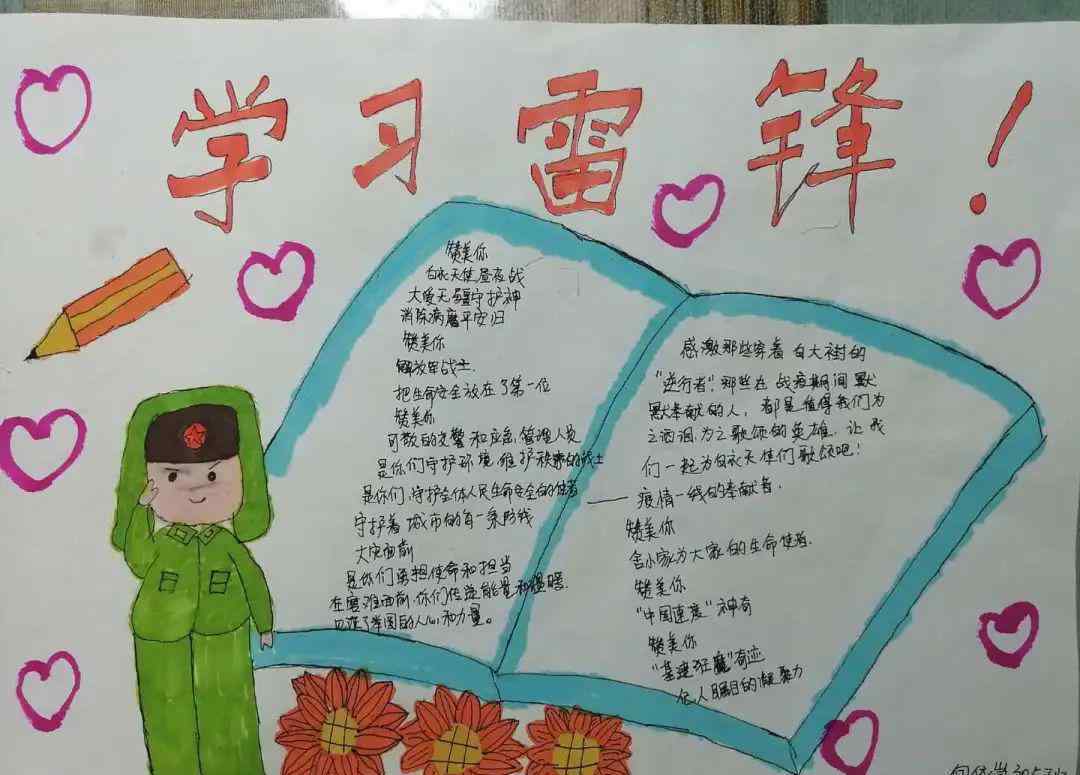 学习雷锋！
赞美你
白衣天使昼夜战
大爱无疆守护神
消除病魔平安归
赞美你
解放军战士
把生命安全放在了第一位
赞美你
可敬的交警和应急管理人员
是你们守护环境，维护秩序的战士
是你们，守护全体人民生命安全的使者
守护着城市的每一条防线
大灾面前
是你们勇担使命和担当
在磨难面前，你们传递能量和温暖
了举国的人心和力量。
感激那些穿着白大衬的
“逆行者”，那些在战疫期间默
默奉献的人，都是值得我们为
之洒泪，为之歌颂的英雄，让我
们一起为白衣天使们歌颂吧！
——疫情一线的奉献者，
赞美你
舍小家为大家的生命使者
赞美你
“中国速度”神奇
赞美你
“基建狂魔”奇迹
令人瞩目的凝聚力